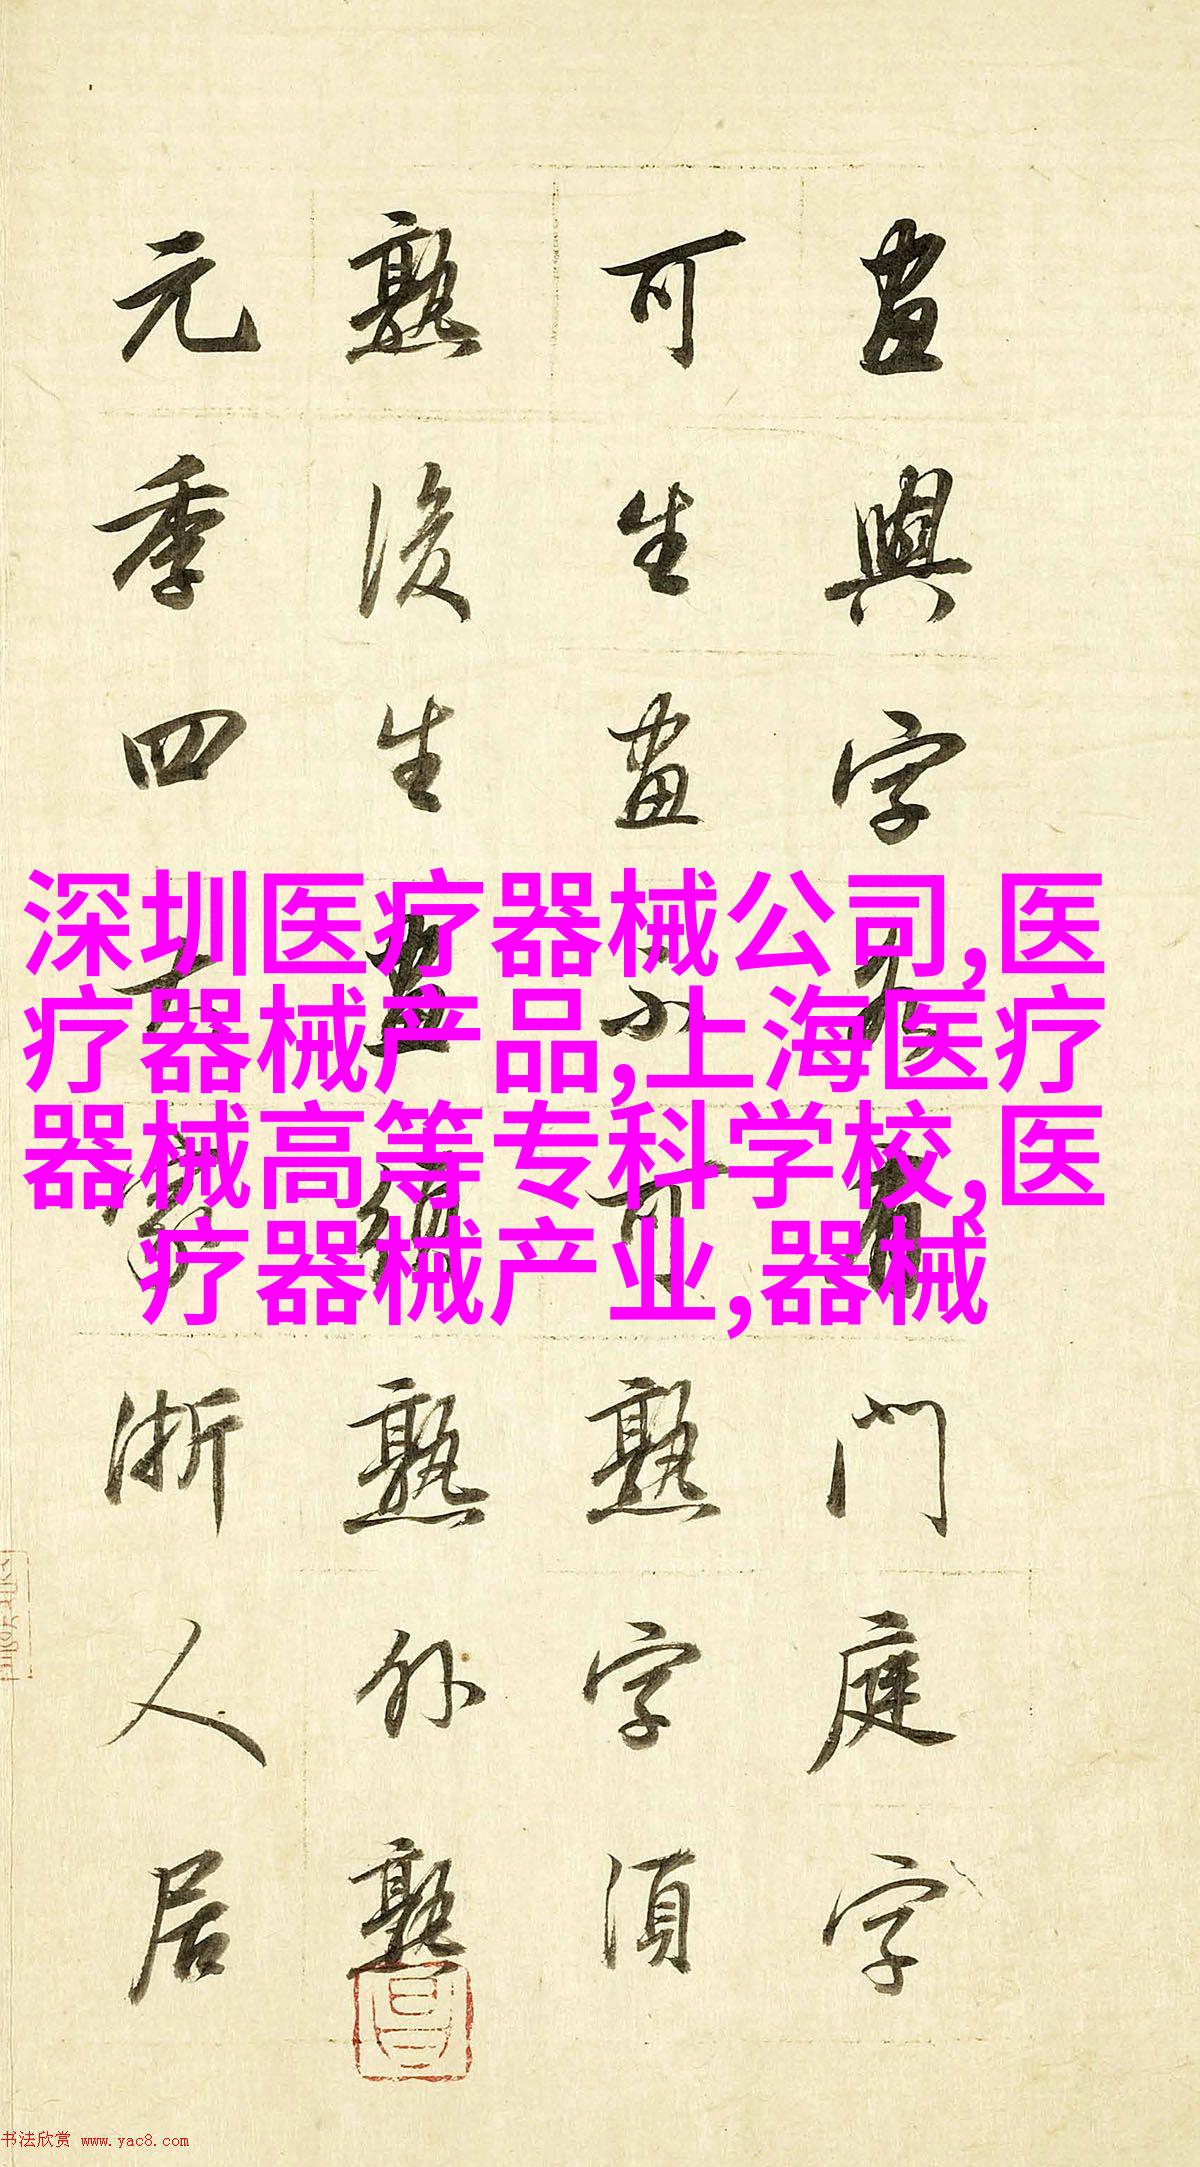 畫與字各有門庭字
可生畫不可熟字須
熟後生畫須熟外熟
元季四大家浙人居
深圳医疗器械公司,医
疗器械产品,上海医疗
器械高等专科学校,医
疗器械产业,器械
书法欣赏 www.yac8.com